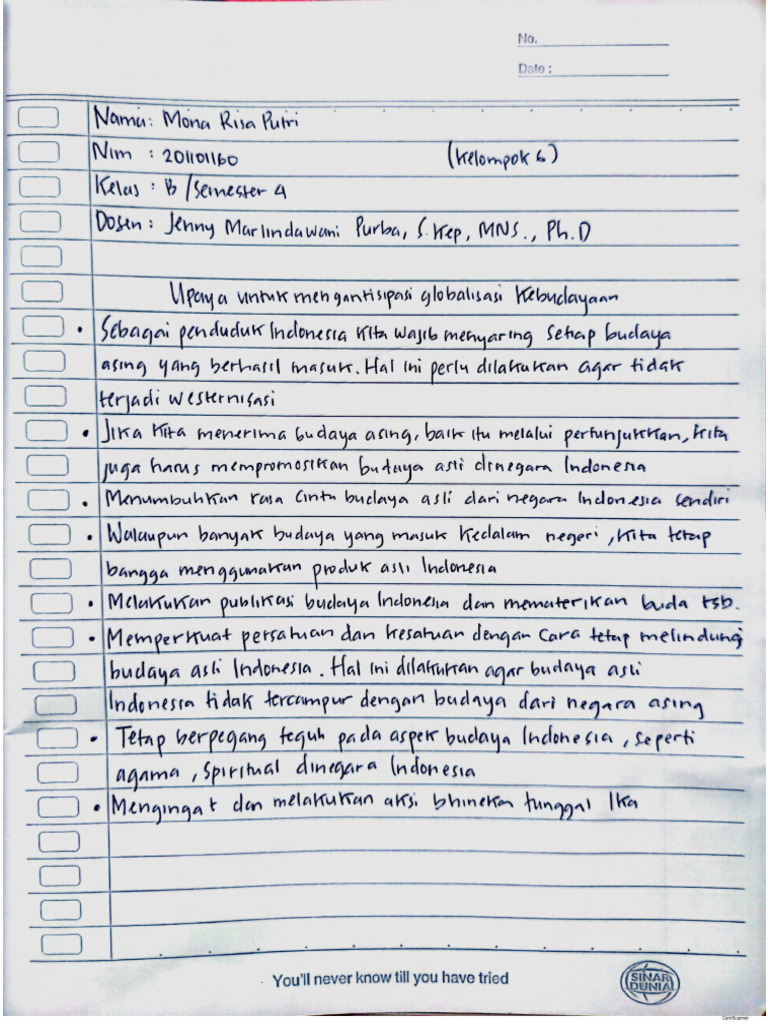 No.
Date :
Nama : Mona Risa Putri
Nim : 201101160 (Kelompok 6)
Kelas : B / Semester 4
Dosen : Jenny Marlindawani Purba, S.Kep, MNS., Ph.D
Upaya untuk mengantisipasi globalisasi Kebudayaan
• Sebagai penduduk Indonesia Kita wajib menyaring setiap budaya
asing yang berhasil masuk. Hal ini perlu dilakukan agar tidak
terjadi westernisasi
• Jika Kita menerima budaya asing, baik itu melalui pertunjukkan, Kita
juga harus mempromosikan budaya asli dinegara Indonesia
• Menumbuhkan rasa cinta budaya asli dari negara Indonesia sendiri
• Walaupun banyak budaya yang masuk Kedalam negeri, Kita tetap
bangga menggunakan produk asli Indonesia
• Melakukan publikasi budaya Indonesia dan mematerikan buda tsb.
• Memperkuat persatuan dan kesatuan dengan cara tetap melindungi
budaya asli Indonesia. Hal ini dilakukan agar budaya asli
Indonesia tidak tercampur dengan budaya dari negara asing
• Tetap berpegang teguh pada aspek budaya Indonesia, seperti
agama, spiritual dinegara Indonesia
• Mengingat dan melakukan aksi bhineka tunggal Ika
You'll never know till you have tried
SINAR
DUNIA
CamScanner